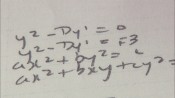 y² - Dy¹ = 0
y² - Dy¹ = F3
ax² + by² = 2
ax² + bxy + cy² =